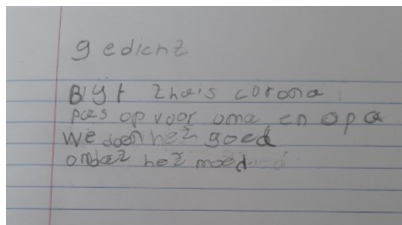 gedicht
Blijft thuis corona
pas op voor oma en opa
we doen het goed
omdat het moed